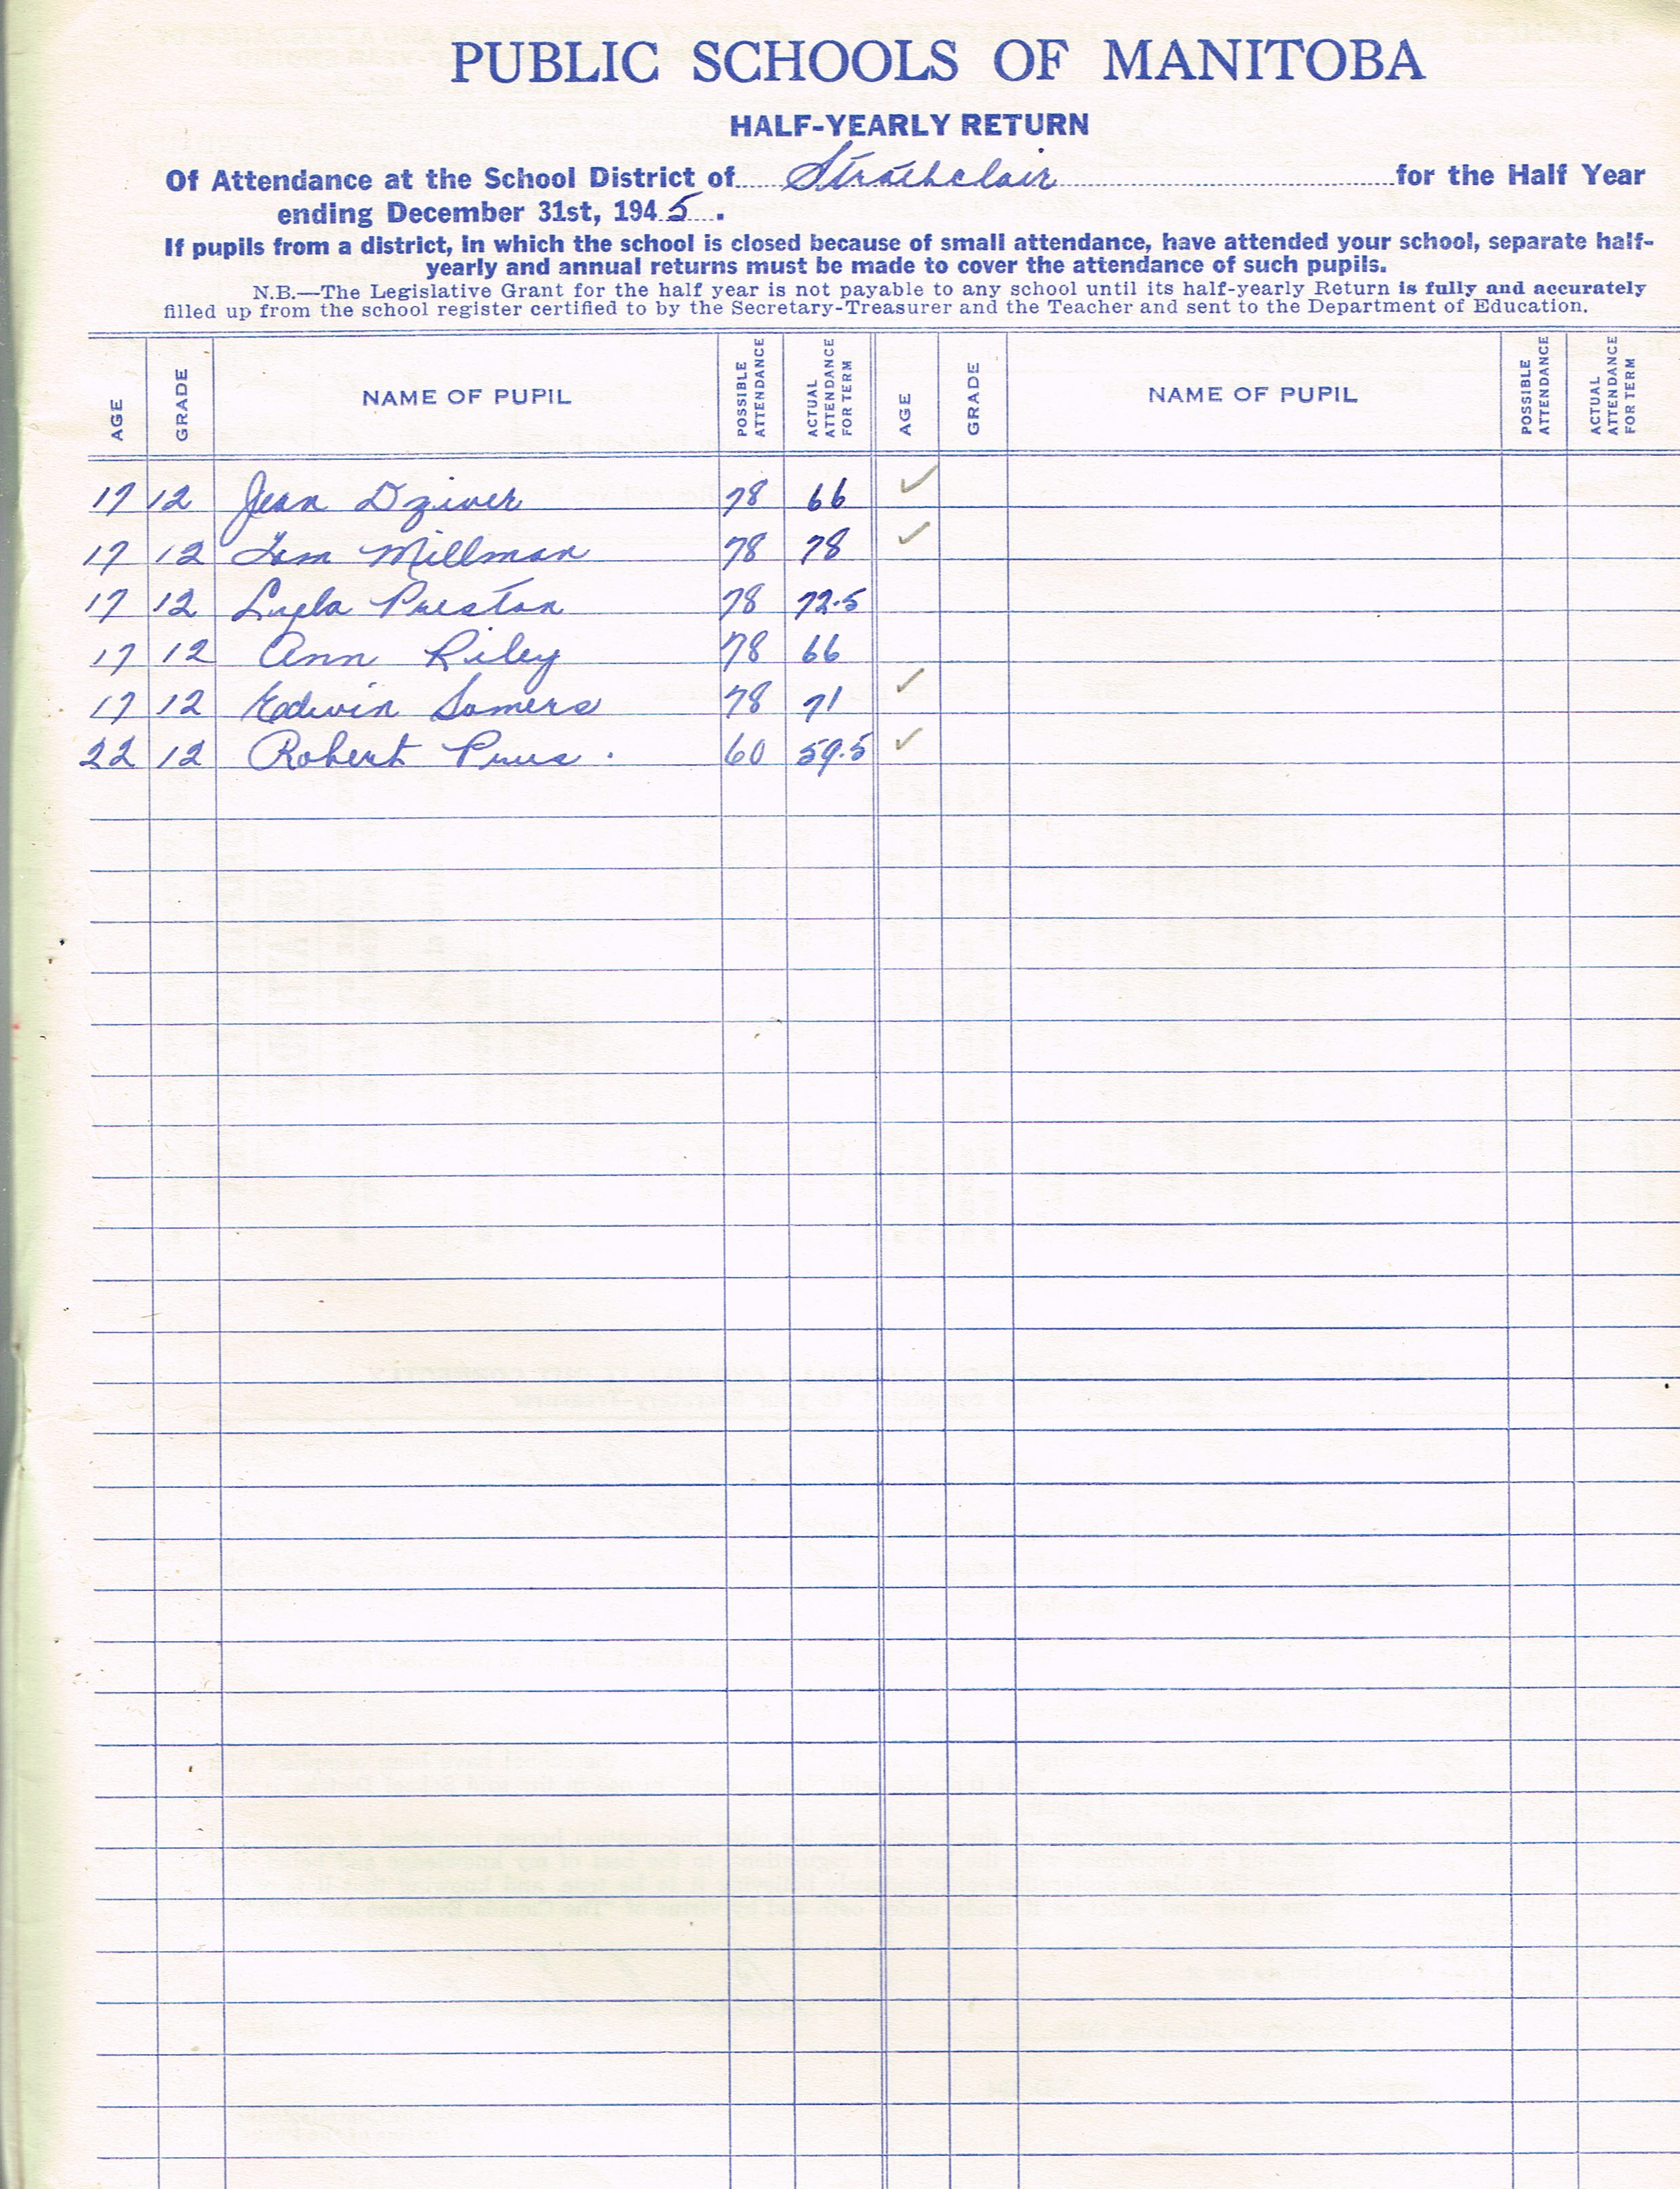 PUBLIC SCHOOLS OF MANITOBA
HALF-YEARLY RETURN
Of Attendance at the School District of Strathclair for the Half Year
ending December 31st, 1945.
If pupils from a district, in which the school is closed because of small attendance, have attended your school, separate half-
yearly and annual returns must be made to cover the attendance of such pupils.
N.B.—The Legislative Grant for the half year is not payable to any school until its half-yearly Return is fully and accurately
filled up from the school register certified to by the Secretary-Treasurer and the Teacher and sent to the Department of Education.
AGE GRADE NAME OF PUPIL POSSIBLE ATTENDANCE ACTUAL ATTENDANCE FOR TERM AGE GRADE NAME OF PUPIL POSSIBLE ATTENDANCE ACTUAL ATTENDANCE FOR TERM
17 12 Jean Dziver 78 66 ✓
17 12 Tom Millman 78 78 ✓
17 12 Preston 78 72.5
17 12 Ann Riley 78 66
17 12 Edwin Somers 78 71 ✓
22 12 Robert 60 59.5 ✓